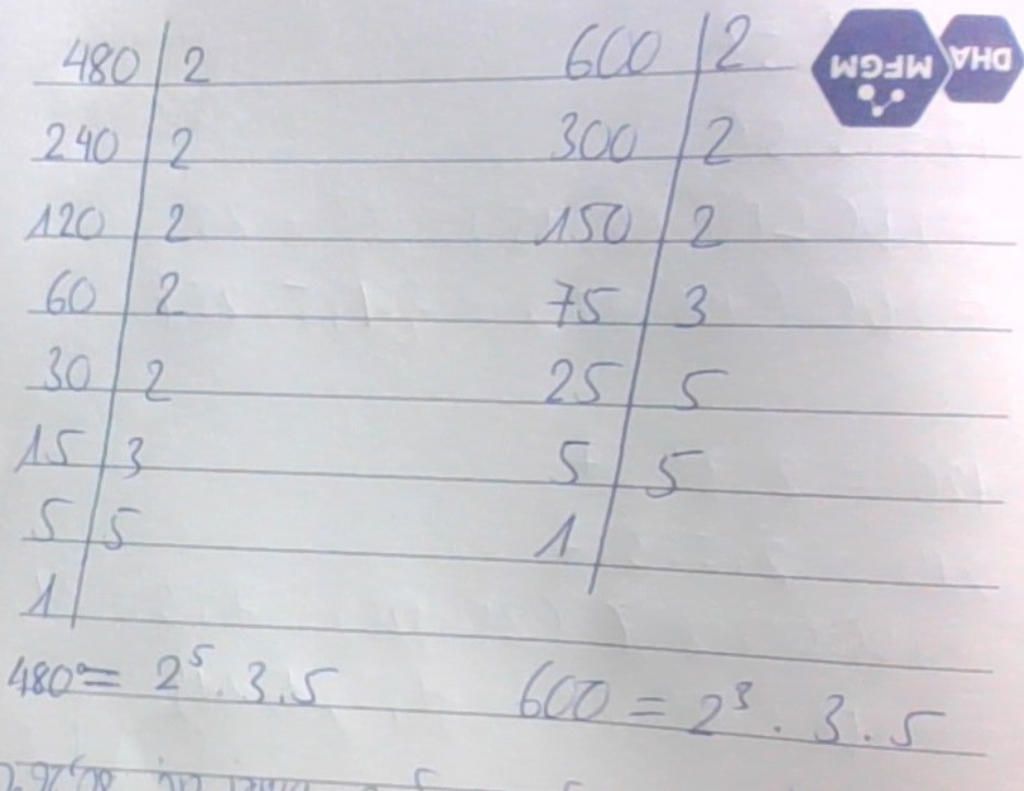 DHA
MFGM
480 | 2
240 | 2
120 | 2
60 | 2
30 | 2
15 | 3
5 | 5
1 |
600 | 2
300 | 2
150 | 2
75 | 3
25 | 5
5 | 5
1 |
480 = 2⁵ . 3 . 5
600 = 2³ . 3 . 5